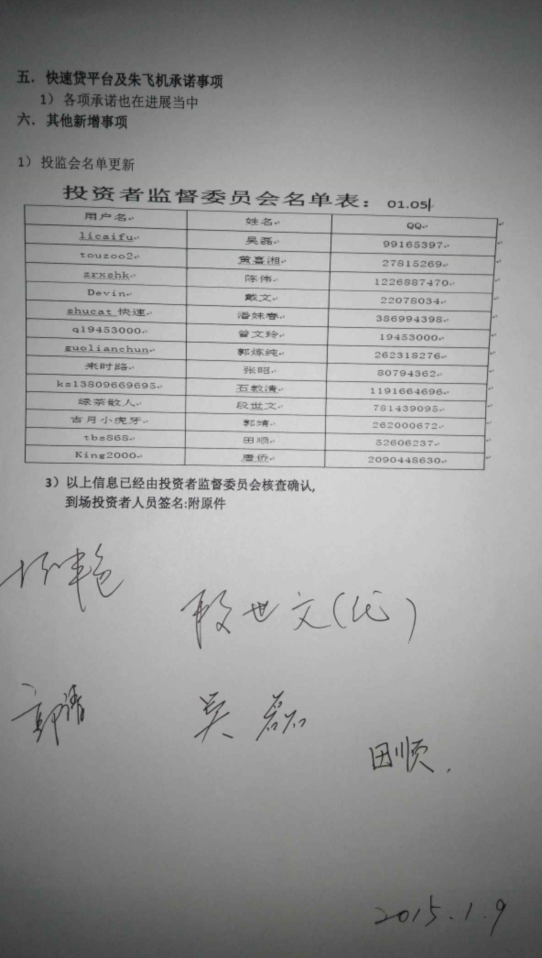 五. 快速贷平台及朱飞机承诺事项
1） 各项承诺也在进展当中
六. 其他新增事项
1） 投监会名单更新
投资者监督委员会名单表: 01.05
用户名 姓名 QQ
licaifu 吴磊 99165397
touzoo2 黄喜湘 27815269
zrxchk 陈伟 1226887470
Devin 戴文 22078034
shucat_快速 潘妹春 386994398
q19453000 曾文玲 19453000
guolianchun 郭炼纯 262318276
来时路 张昭 80794362
ks13809669695 伍毅清 1191664696
绿茶散人 段世文 781439095
古月小虎牙 郭靖 262000672
tbs868 田顺 52606237
King2000 唐侨 2090448630
3） 以上信息已经由投资者监督委员会核查确认,
到场投资者人员签名:附原件
段世文(代)
郭靖 吴磊
田顺.
2015.1.9